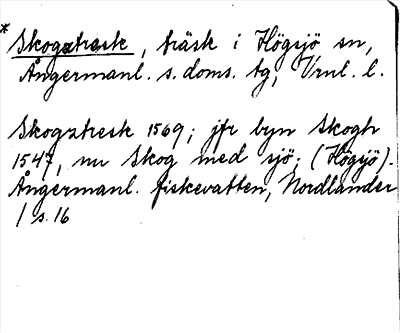 * Skogxtresk, träsk i Högsjö sn,
Ångermanl. s. doms. tg, Vrnl. l.
Skogztresk 1569; jfr byn Skogh
1547, nu Skog med sjö; (Högsjö).
Ångermanl. fiskevatten, Nordlander
/ s. 16